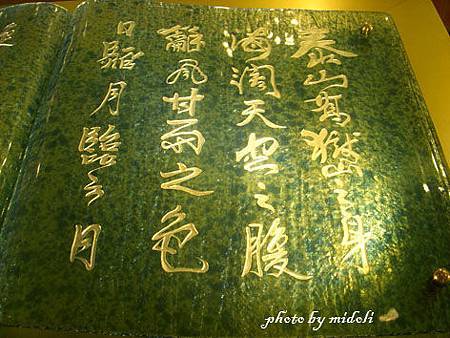 泰山喬嶽之身
海闊天空之腹
和風甘雨之色
日照月臨之目
photo by midoli